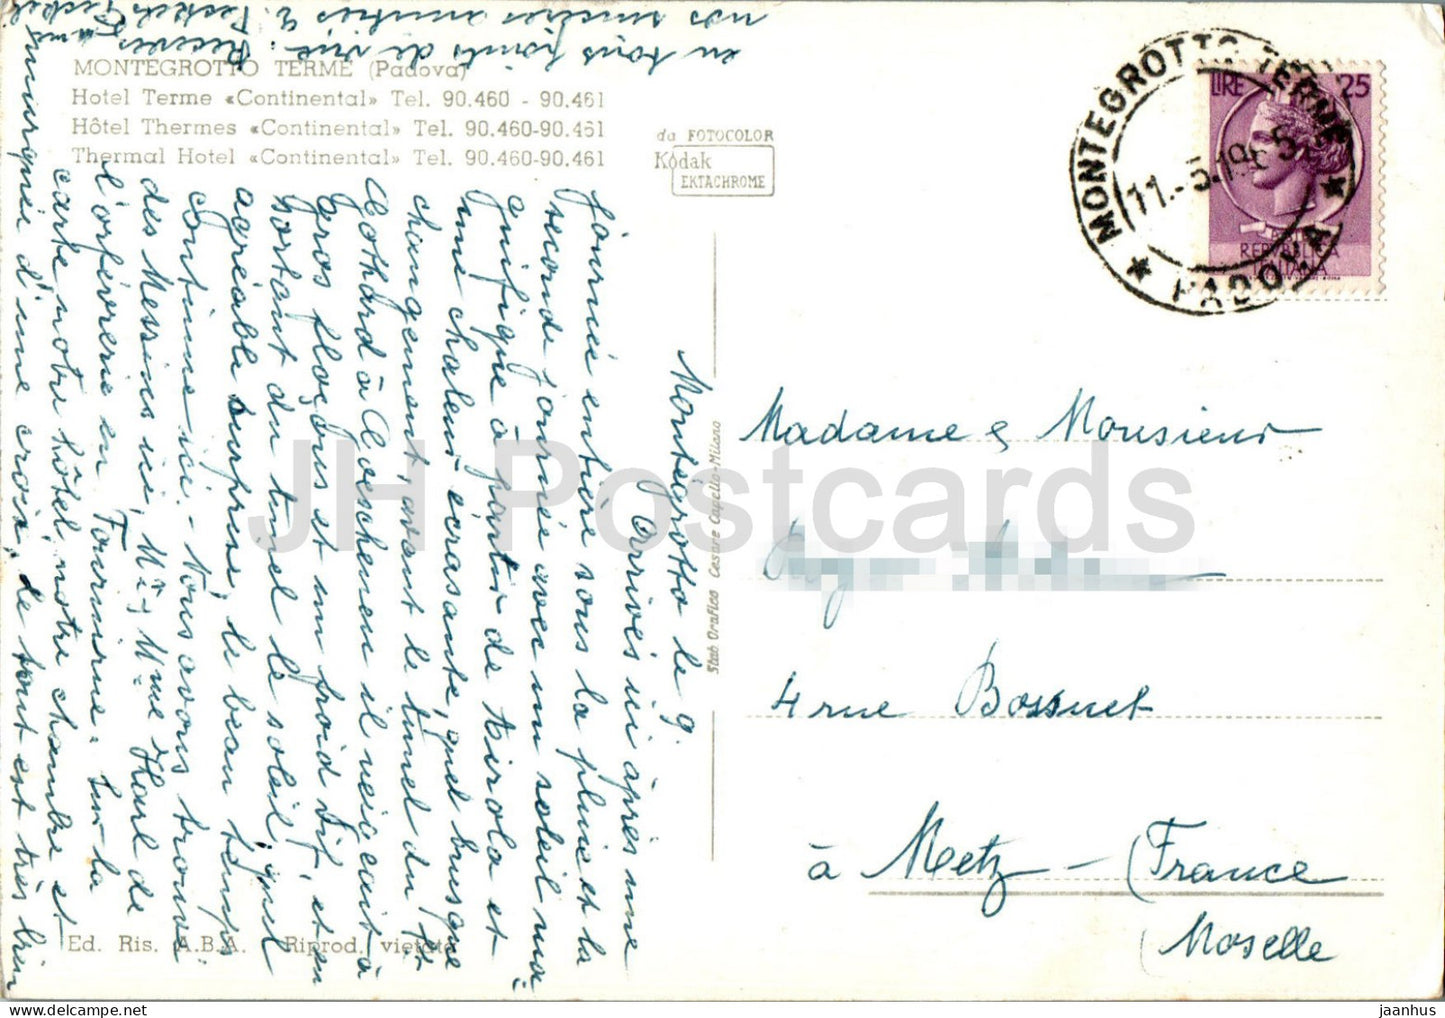 MONTEGROTTO TERME (Padova)
Hotel Terme «Continental» Tel. 90.460 - 90.461
Hôtel Thermes «Continental» Tel. 90.460-90.461
Thermal Hotel «Continental» Tel. 90.460-90.461
da FOTOCOLOR
Kodak
EKTACHROME
MONTEGROTTO TERME
11.-5.19
PADOVA
LIRE 25
REPUBBLICA
ITALIANA
Montégrotto le 9.
Arrivés ici après une
journée entière sous la pluie et la
seconde journée avec un soleil ma
gnifique à partir de Airola et
une chaleur écrasante, quel brusque
changement, avant le tunel du St
Gothard à Goeschenen il neigeait à
gros flocons et un froid dit, et en
sortant du tunel le soleil, quel
agréable surprise, le beau temps
continue ici. - Nous avons trouvé
des Messins ici, Mr et Mme Harl de
l'orfèvrerie en Fournirue. Sur la
carte notre hôtel, notre chambre et
marquée d'une croix, de tout est très bien
en tous points de vue. Recevez
nos sincères amitiés
Stab Grafico Cesare Capello-Milano
Madame & Monsieur
4 rue Bossuet
à Metz - (France
Moselle
Ed. Ris. A.B.A. Riprod. vietata
JH Postcards
jaanhus